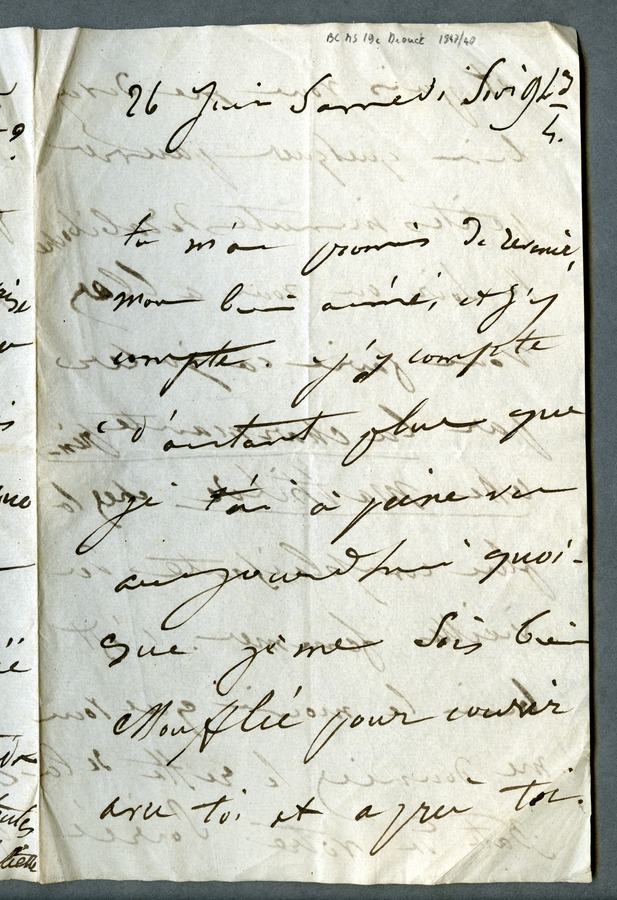 BC MS 19c Drouet 1847/40
26 Juin Samedi Soir 9h 3/4.
tu m'as promis de revenir,
mon bien aimé, et j'y
compte j'y compte
d'autant plus que
je t'ai à peine vu
aujourd'hui quoi-
que je me sois bien
essoufflée pour courir
avec toi et après toi.